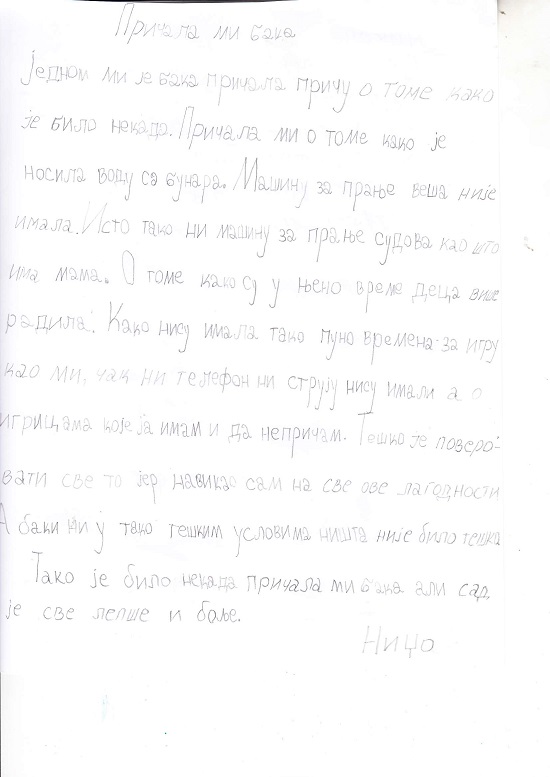 Причала ми бака
Једном ми је бака причала причу о томе како
је било некада. Причала ми о томе како је
носила воду са бунара. Машину за прање веша није
имала. Исто тако ни машину за прање судова као што
има мама. О томе како су у њено време деца више
радила. Како нису имала тако пуно времена за игру
као ми, чак ни телефон ни струју нису имали а о
игрицама које ја имам и да непричам. Тешко је поверо-
вати све то јер навикао сам на све ове лагодности
А баки ни у тако тешким условима ништа није било тешко
Тако је било некада причала ми бака али сад
је све лепше и боље.